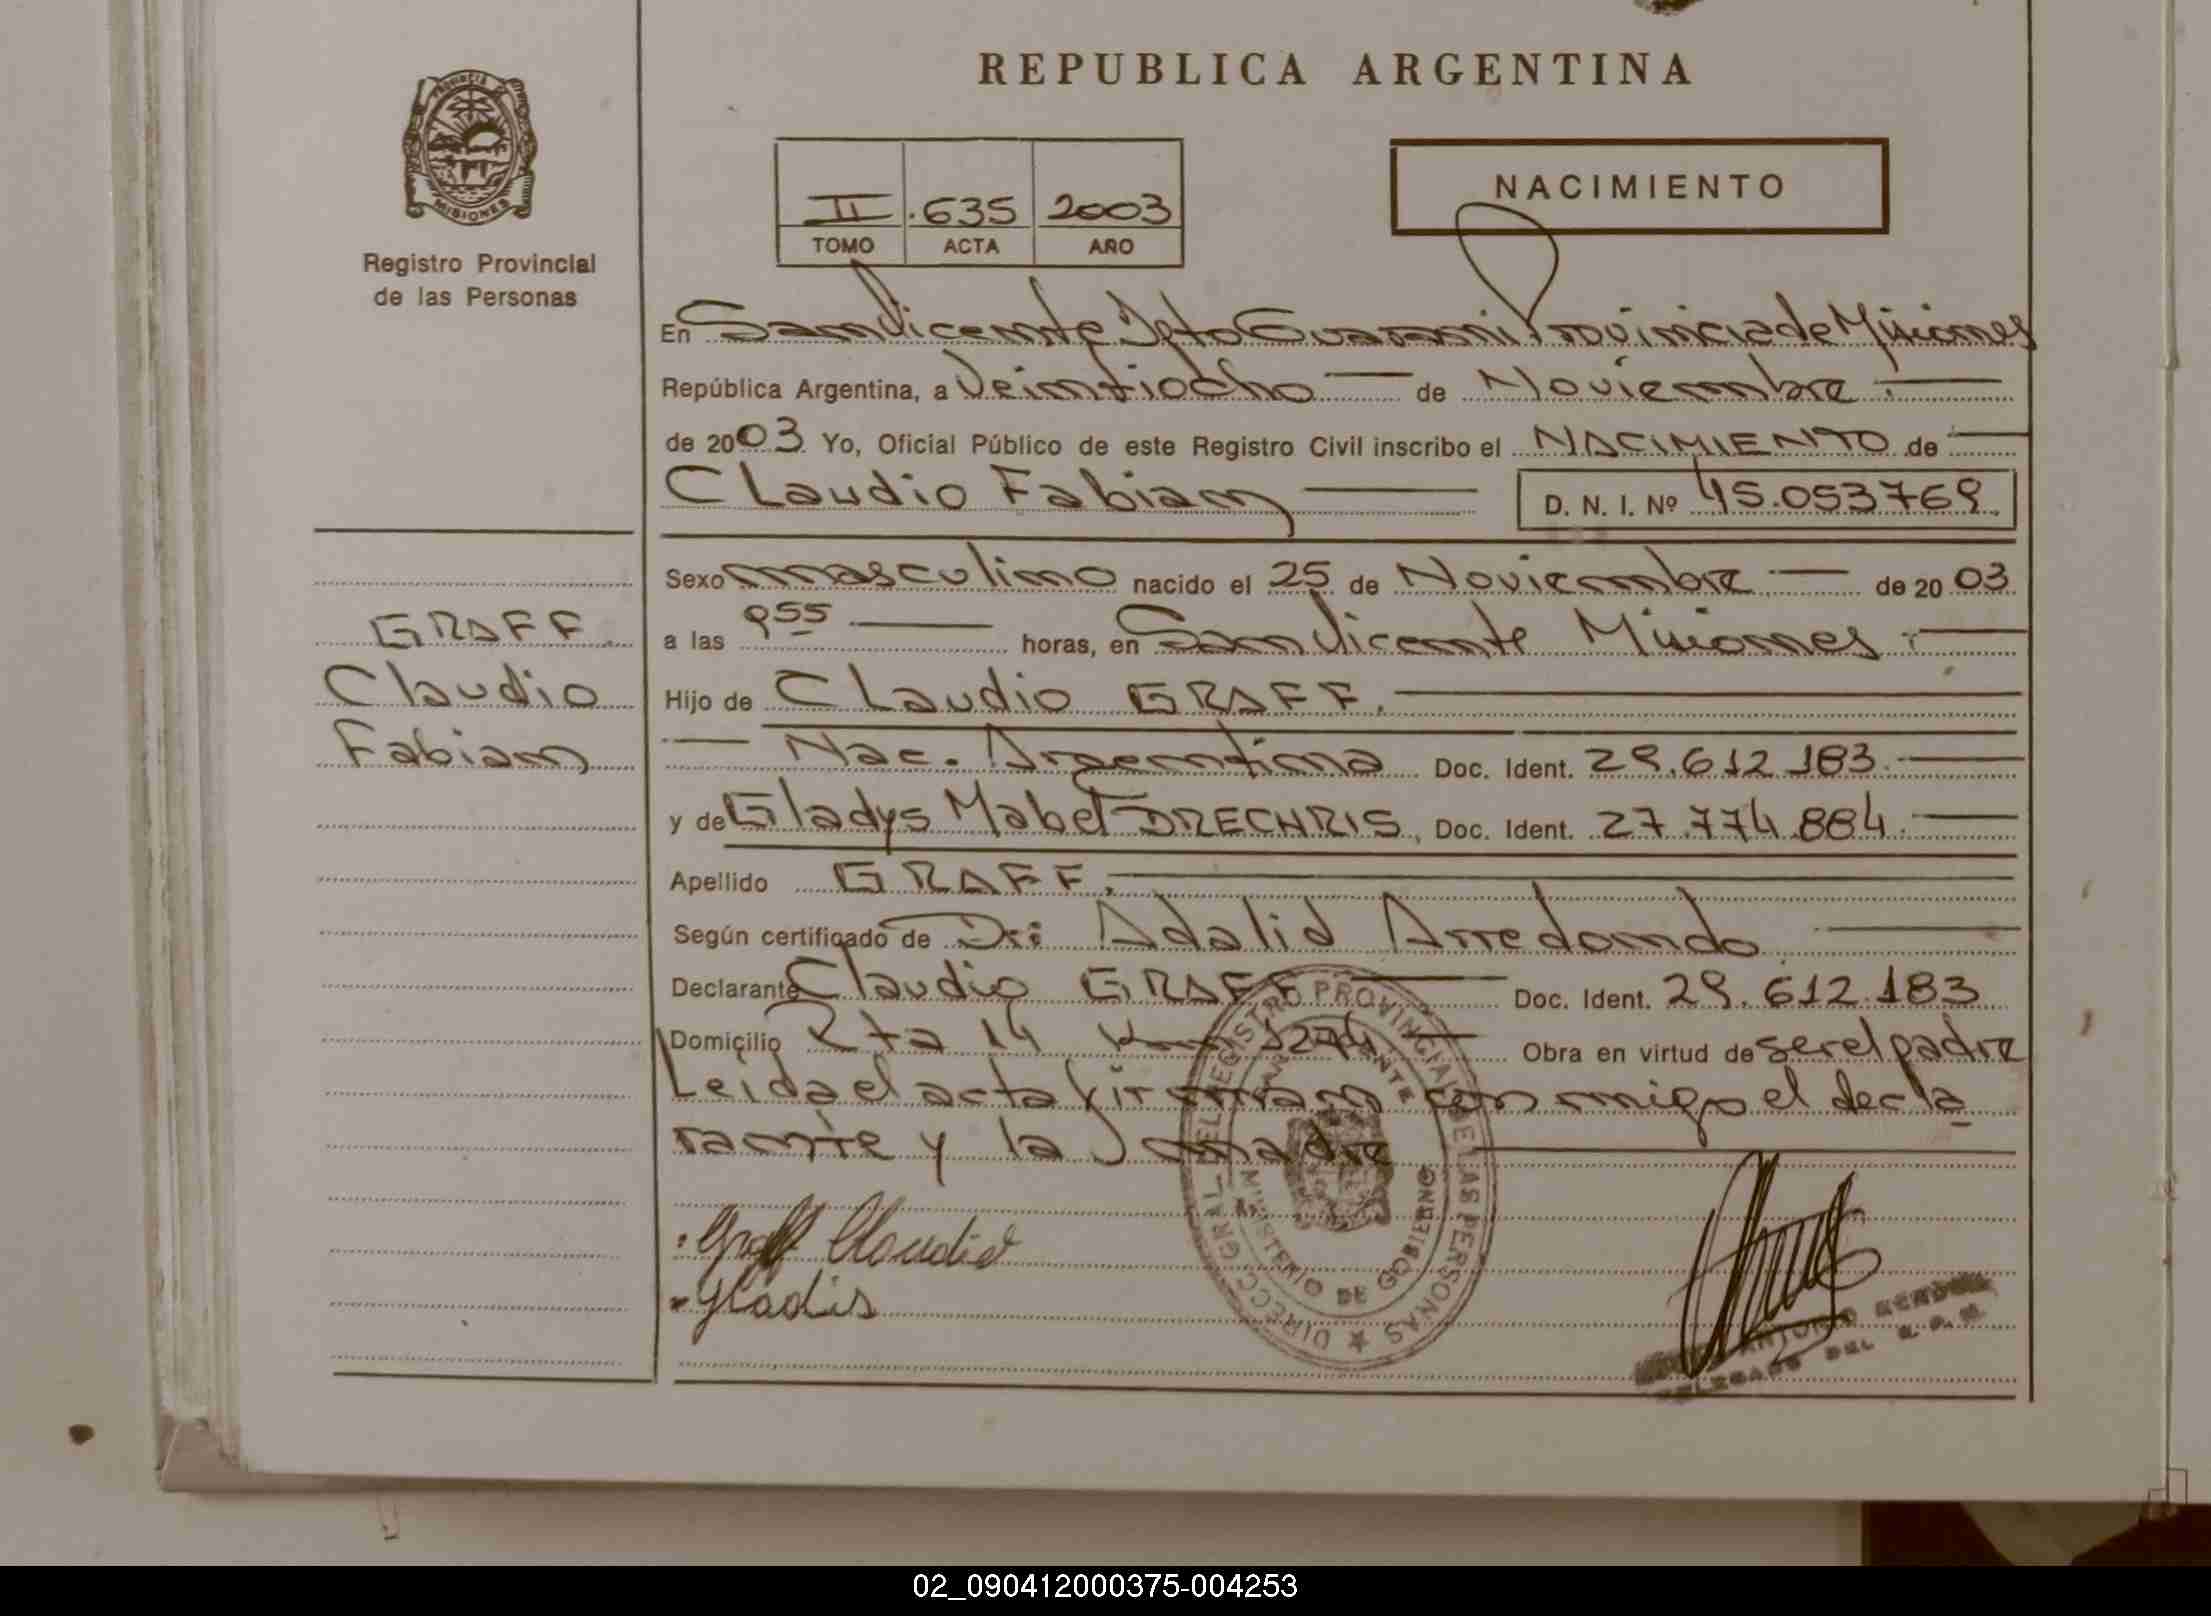 REPUBLICA ARGENTINA
PROVINCIA DE
MISIONES
Registro Provincial
de las Personas
II .635 2003
TOMO ACTA AÑO
NACIMIENTO
En San Vicente Dpto Guarani Provincia de Misiones
República Argentina, a Veintiocho de Noviembre
de 2003 Yo, Oficial Público de este Registro Civil inscribo el NACIMIENTO de
Claudio Fabian D. N. I. Nº 45.053769
Sexo masculino nacido el 25 de Noviembre de 2003
a las 9 55 horas, en San Vicente Misiones
Hijo de Claudio GRAFF.
Nac. Argentina Doc. Ident. 29.612.183.
y de Gladys Mabel DRECHRIS, Doc. Ident. 27.774.884.
Apellido GRAFF.
Según certificado de Dr: Adalid Arredondo
Declarante Claudio GRAFF Doc. Ident. 29.612.183
Domicilio Rta 14 Km Obra en virtud de ser el padre
Leida el acta firman con migo el decla
rante y la madre
GRAFF
Claudio
Fabian
Graff Claudio
Gladis
DIRECC. GRAL. DEL REGISTRO PROVINCIAL DE LAS PERSONAS
SAN VICENTE
MINISTERIO DE GOBIERNO
ANTONIO
DELEGADO DEL R. P. M.
02_090412000375-004253